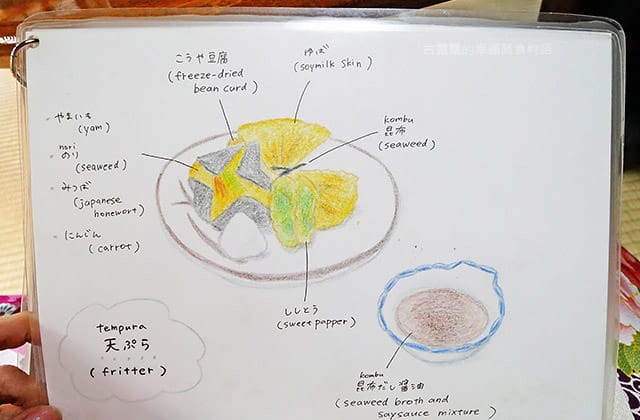 こうや豆腐
(freeze-dried
bean curd)
ゆば
(soymilk skin)
kombu
昆布
(seaweed)
やまいも
(yam)
nori
のり
(seaweed)
みつば
(japanese
honewort)
にんじん
(carrot)
ししとう
(sweet papper)
tempura
天ぷら
(fritter)
kombu
昆布だし醤油
(seaweed broth and
saysauce mixture)